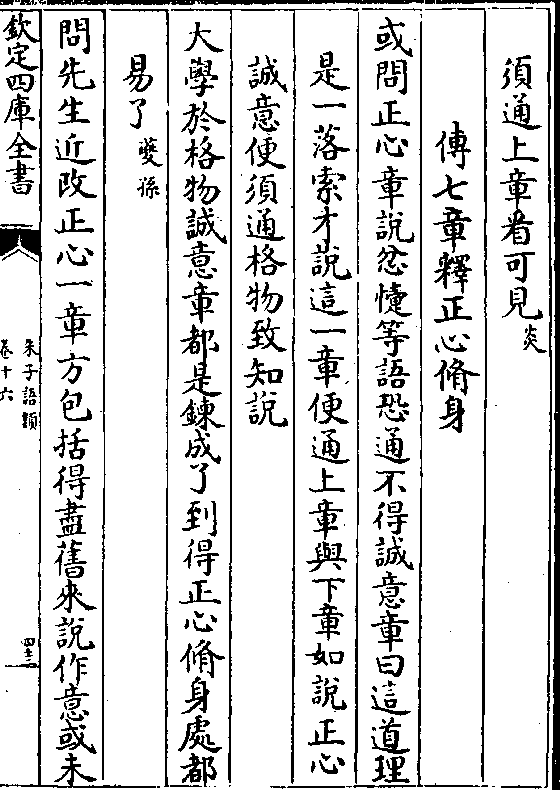 須通上章看可見炎
傳七章釋正心脩身
或問正心章説忿懥等語恐通不得誠意章曰這道理
是一落索才説這一章便通上章與下章如説正心
誠意便須通格物致知説
大學於格物誠意章都是鍊成了到得正心脩身處都
易了夔孫
問先生近改正心一章方包括得盡舊來説作意或未
欽定四庫全書
朱子語類
卷十六